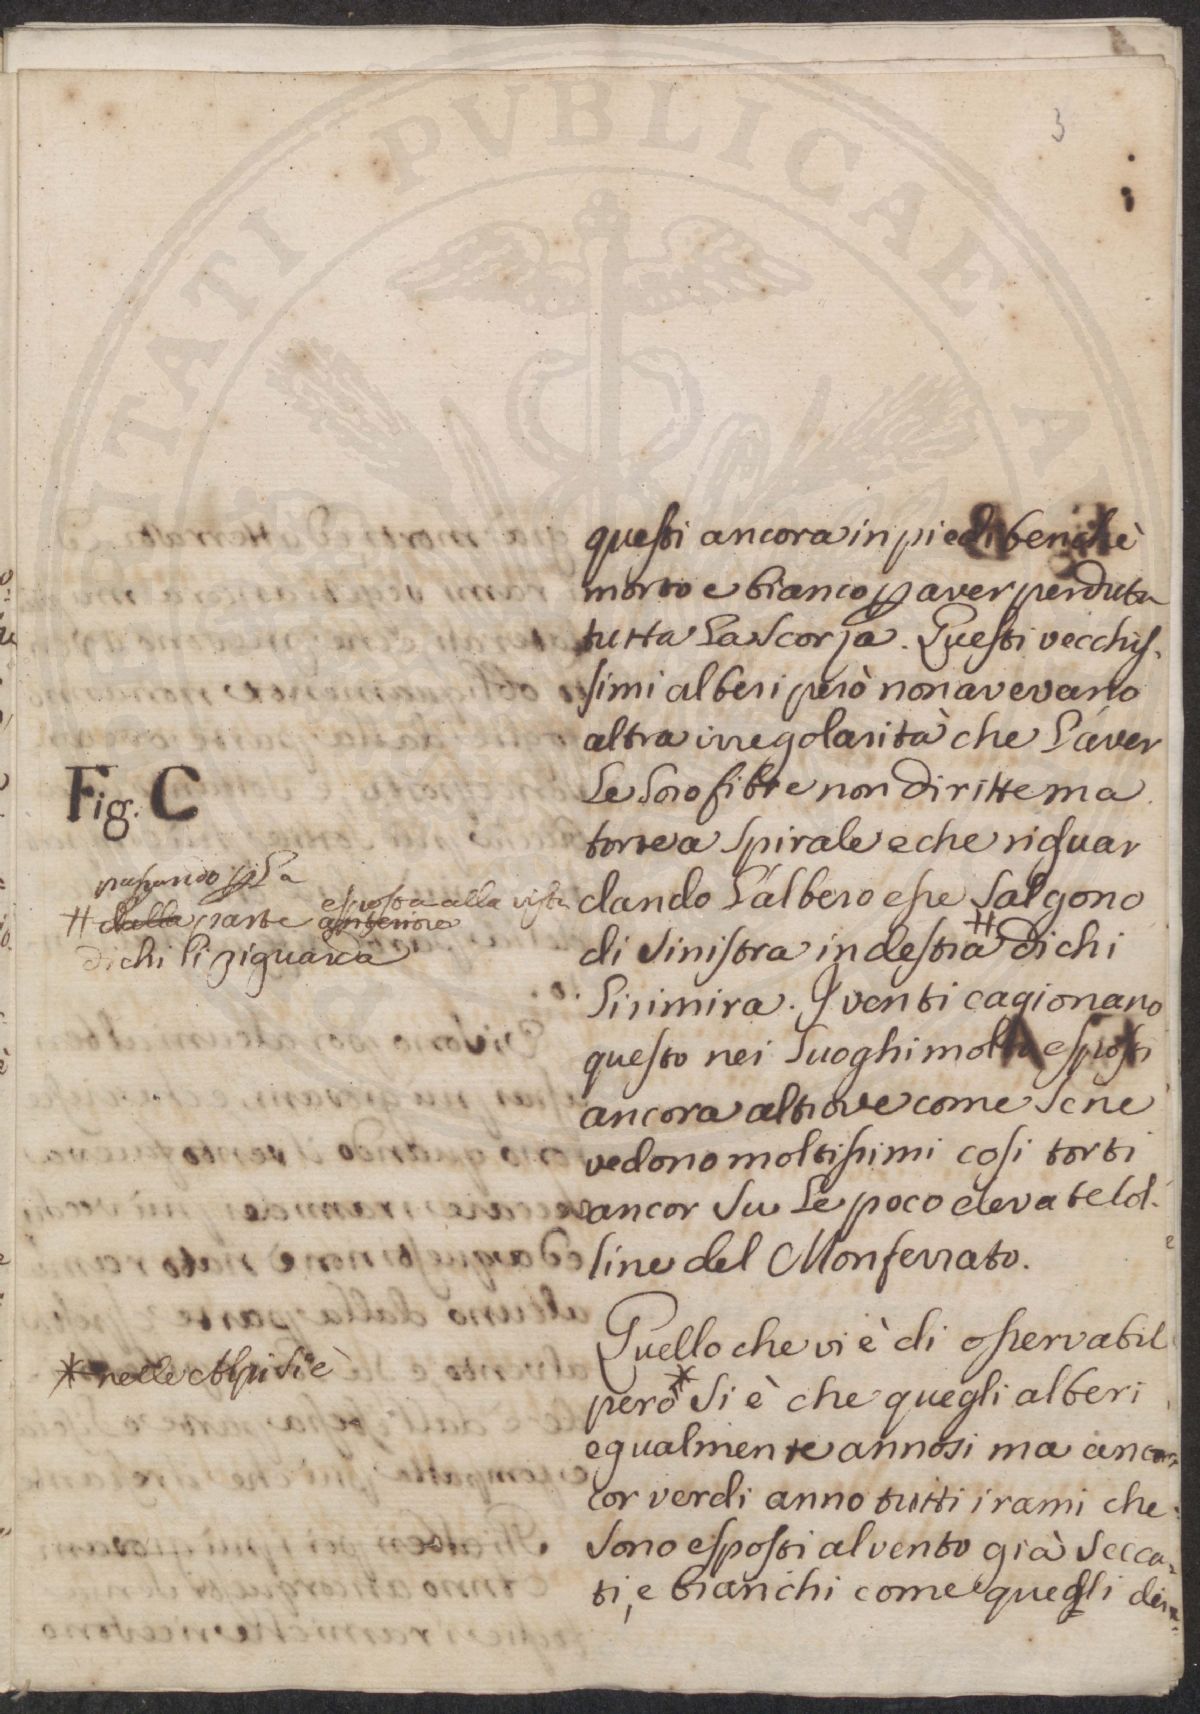 3
questi ancora in piedi benchè
morto e bianco p aver perduta
tutta la scorza. Questi vecchis-
simi alberi però non avevano
altra irregolarità che l'aver
le loro fibre non diritte ma
torte a spirale e che riguar
dando l'albero esse salgono
di sinistra in destra # di chi
li rimira. I venti cagionano
questo nei luoghi molto esposti
ancora altrove come se ne
vedono moltissimi così torti
ancor su le poco elevate Col-
line del Monferrato.
Quello che vi è di osservabil
però * si è che quegli alberi
egualmente annosi ma anco
cor verdi anno tutti i rami che
sono esposti al vento già secca-
ti, e bianchi come quegli dei
Fig. C
passando p la
esposta alla vista
# dalla parte anteriore
di chi li riguarda
* nelle Alpi si è
PUBLICAE